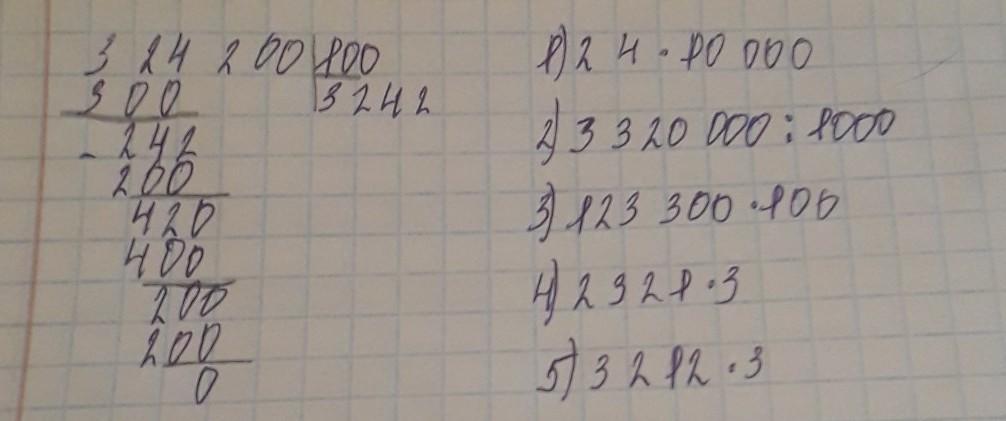 324 200|100
300
3242
- 242
200
420
400
200
200
0
1) 24 · 10 000
2) 3 320 000 : 1000
3) 123 300 · 100
4) 2321 · 3
5) 3212 · 3